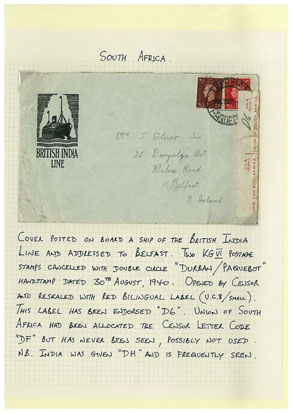 South Africa.
BRITISH INDIA
LINE
Belfast
N. Ireland.
Cover posted on board a ship of the British India
Line and addressed to Belfast. Two KGVI postage
stamps cancelled with double circle "Durban/Paquebot"
handstamp dated 30th August, 1940. Opened by Censor
and resealed with red bilingual label (U.C.8/small).
This label has been endorsed "D6". Union of South
Africa had been allocated the Censor Letter Code
"DF" but has never been seen, possibly not used.
NB. India was given "DH" and is frequently seen.